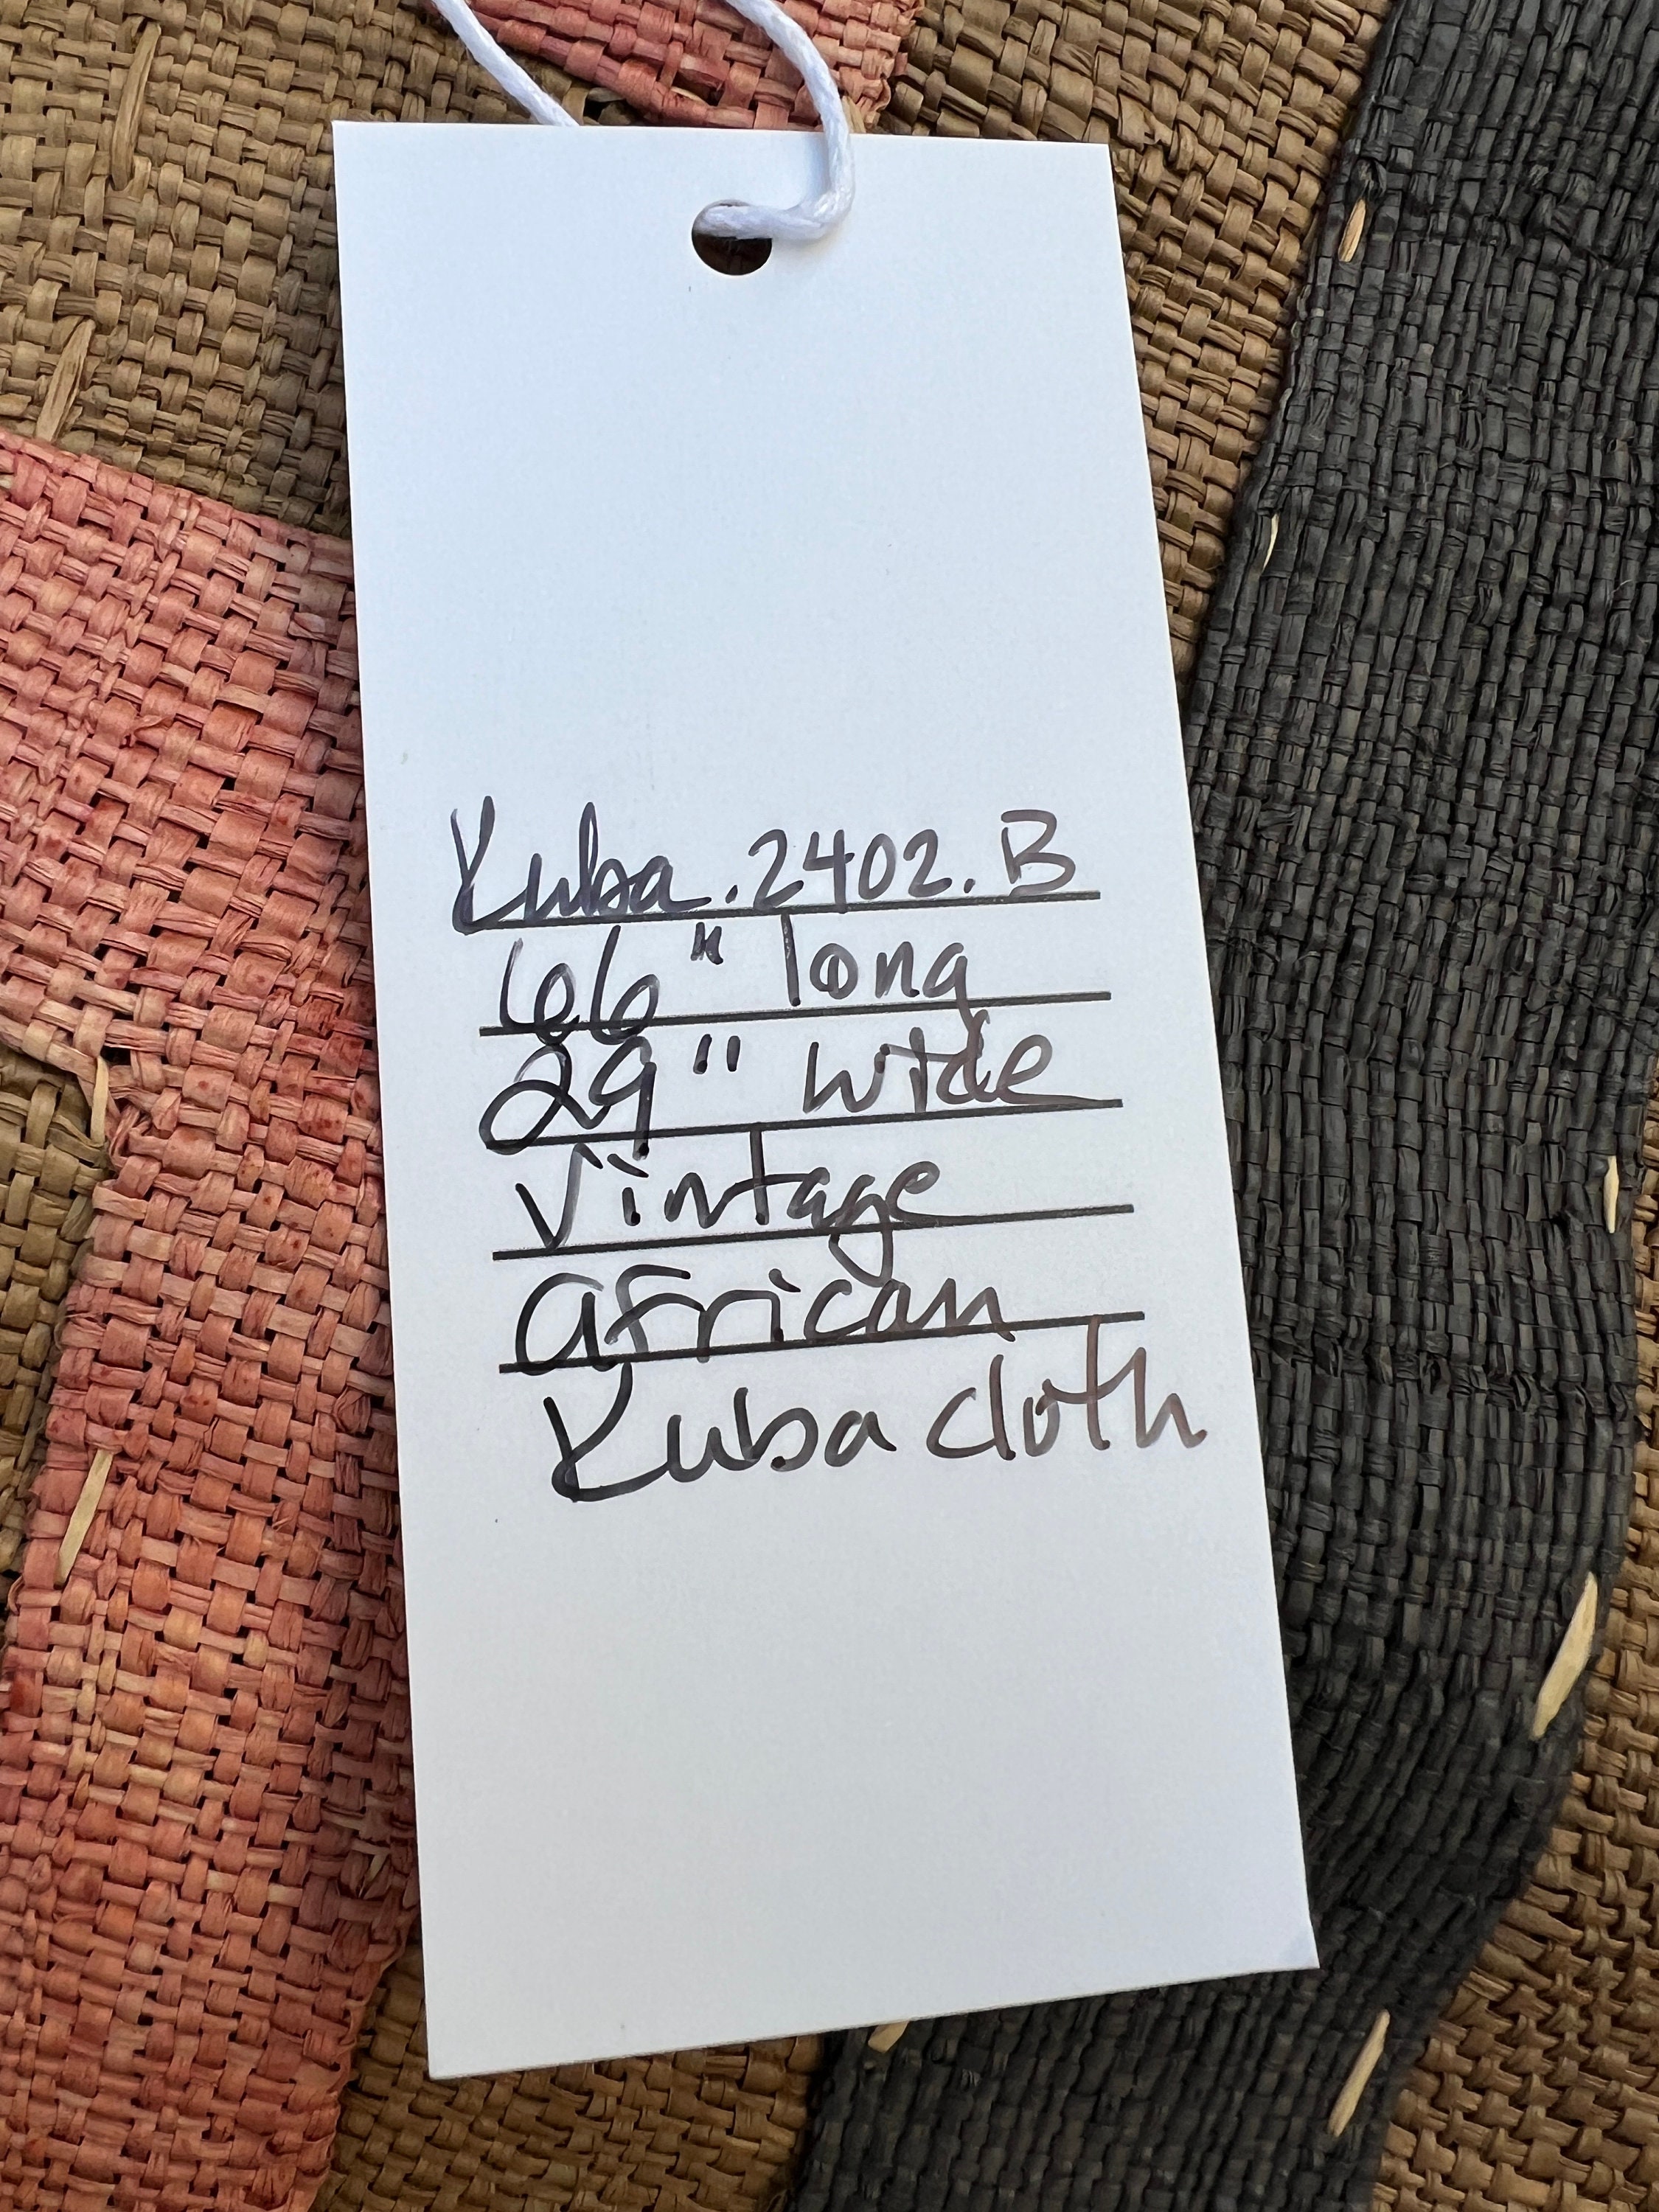 Kuba.2402.B
66" long
29" wide
Vintage
african
Kuba cloth